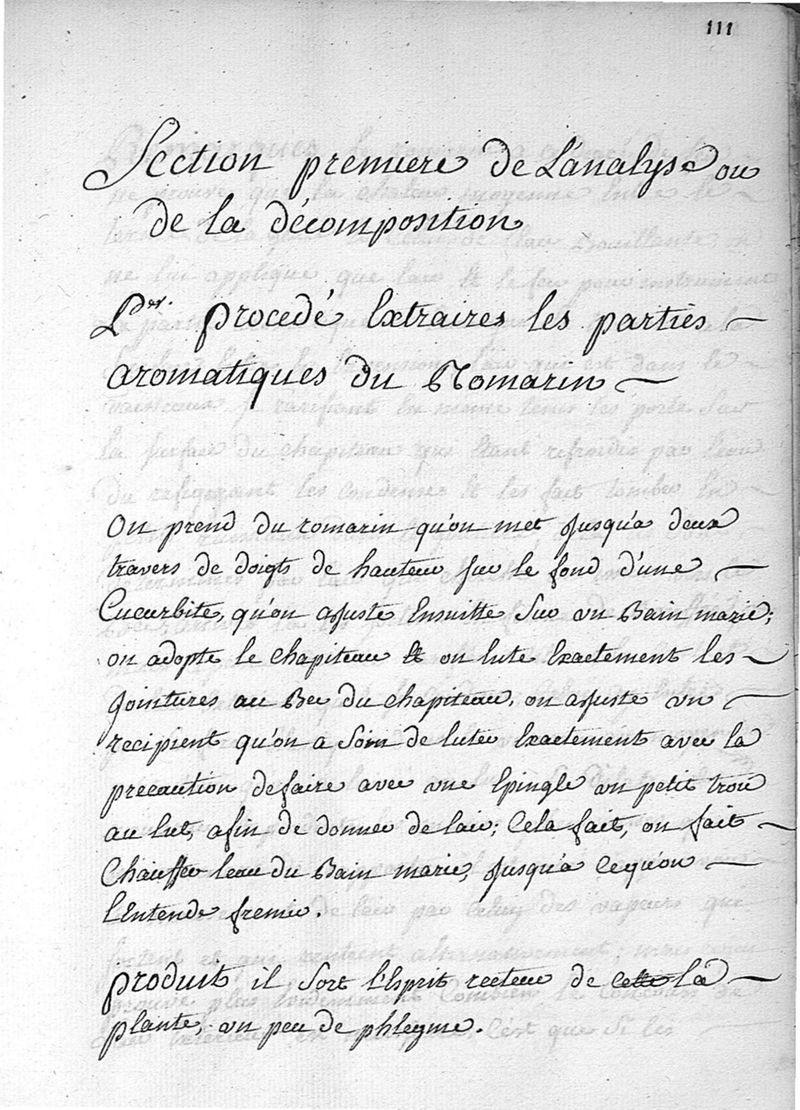 111
Section premiere de L'analyse ou
de la décomposition
P.er procedé Extraires les parties
aromatiques du Romarin
on prend du romarin qu'on met jusqu'a deux
travers de doigts de hauteur sur le fond d'une
Cucurbite, qu'on ajuste Ensuitte Sur un Bain marie;
on adopte le chapiteau & on lute Exactement les
jointures au Bec du chapiteau, on ajuste un
recipient qu'on a Soin de luter Exactement avec la
precaution de faire avec une Epingle un petit trou
au lut, afin de donner de l'air; Cela fait, on fait
Chauffer l'eau du Bain marie, jusqu'a ce qu'on
l'Entende fremir.
produit il Sort l'Esprit recteur de cette la
plante, un peu de phlegme.